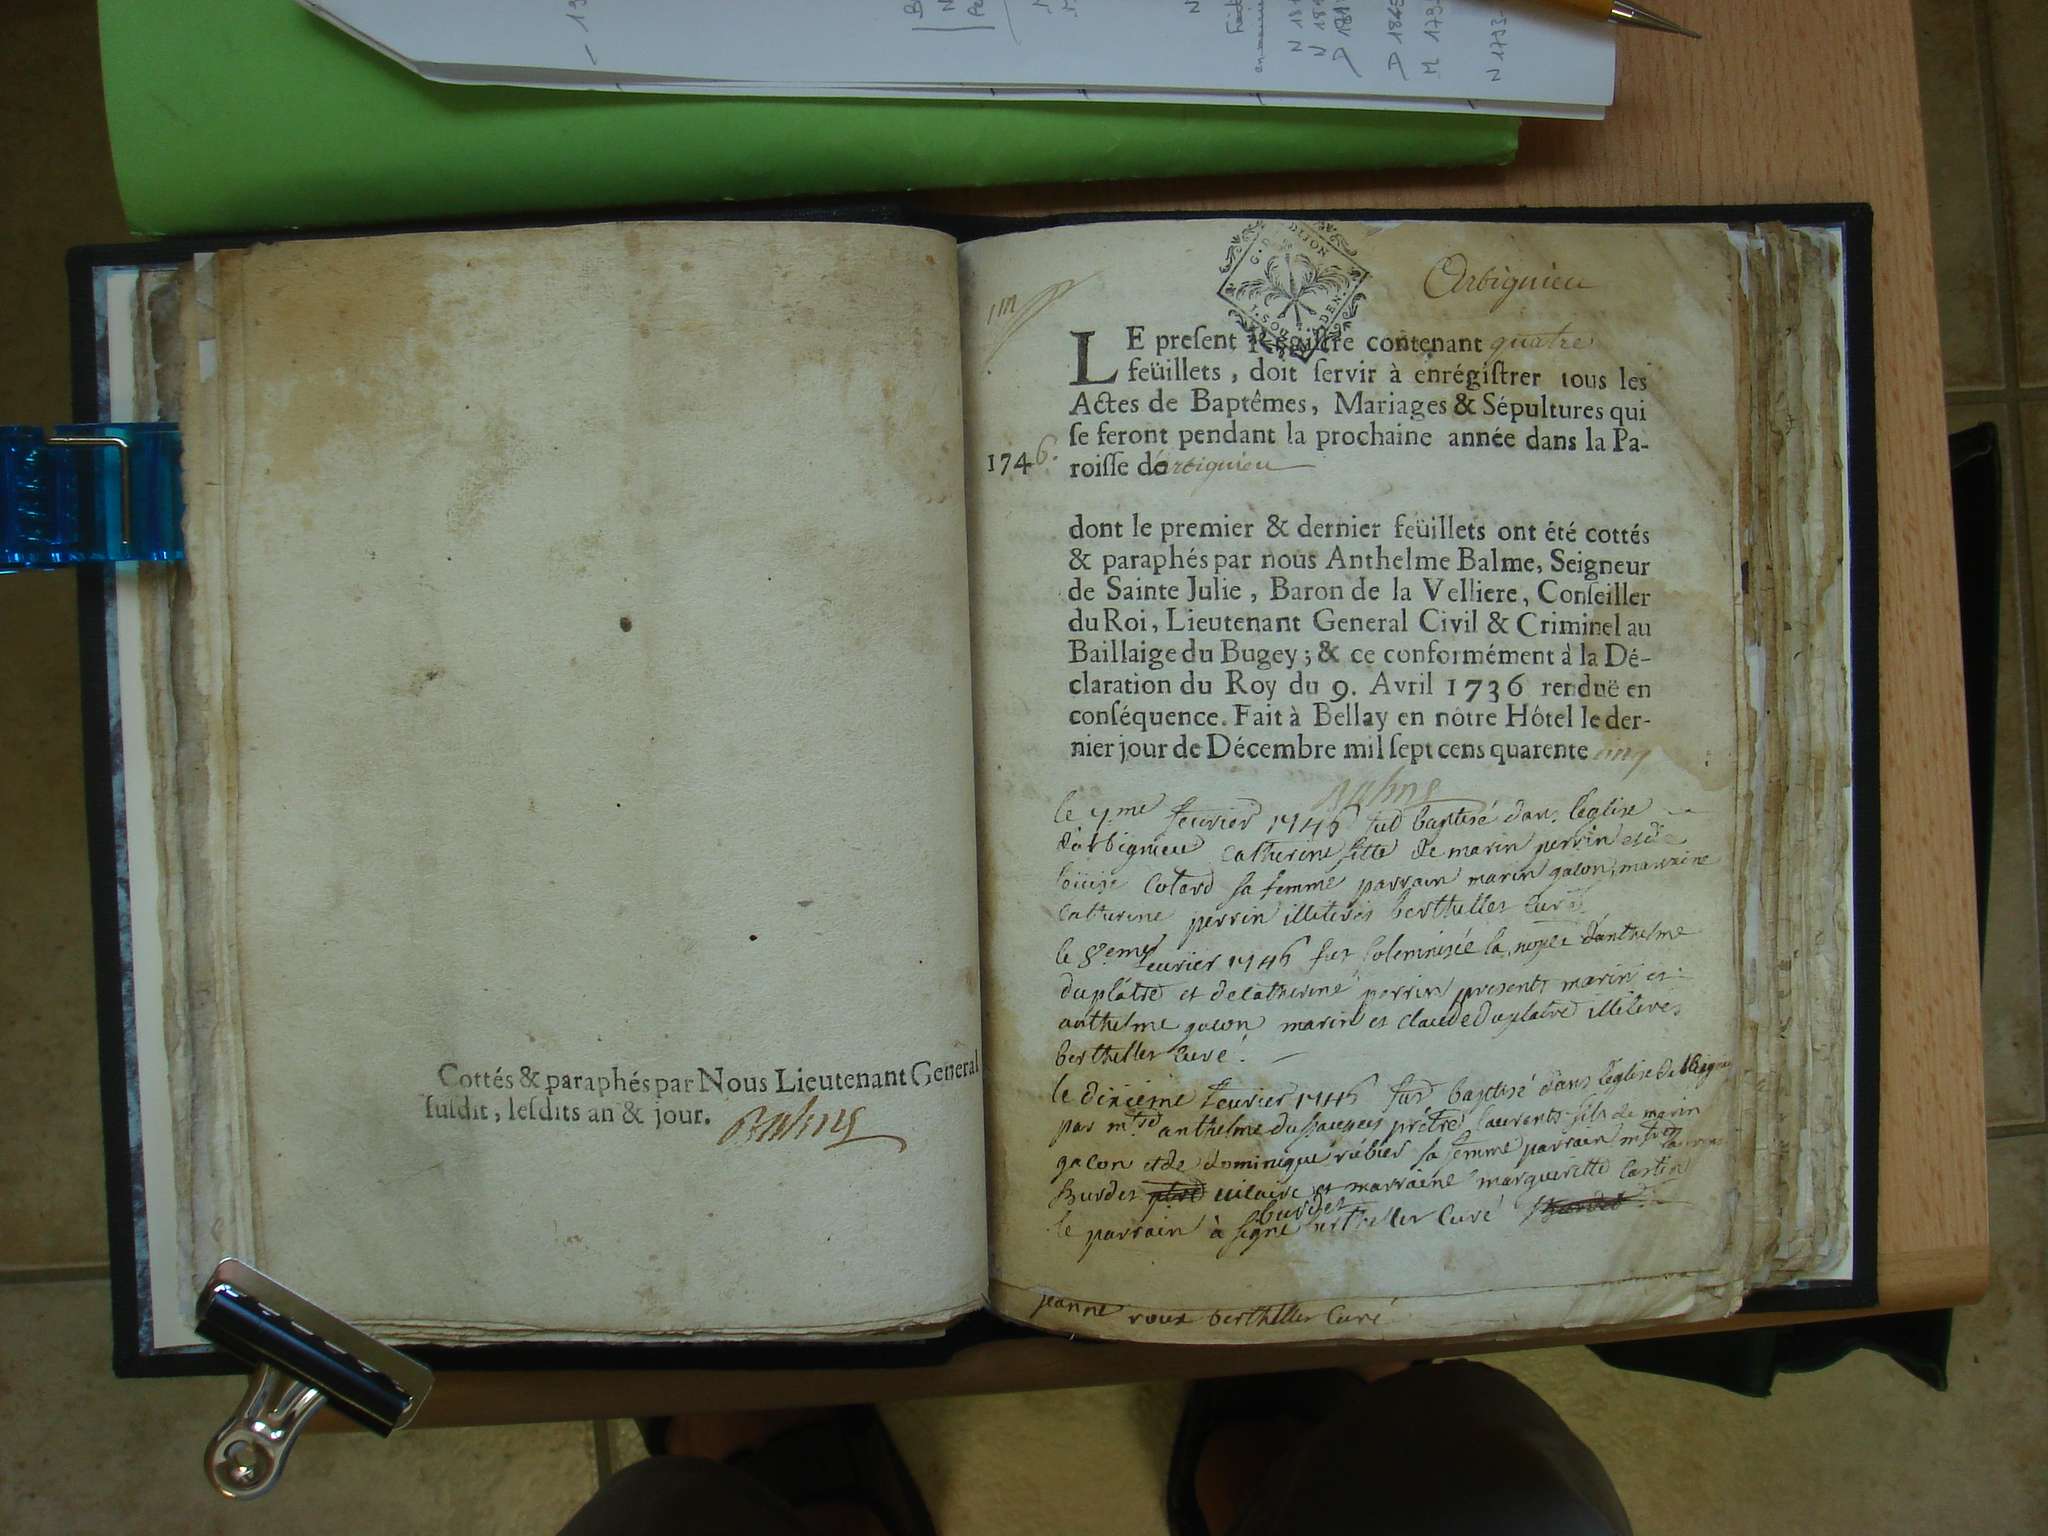 N 1793
Cottés & paraphés par Nous Lieutenant General
ſuſdit, leſdits an & jour.
Arbignieu
LE preſent Regiſtre contenant quatre
feüillets, doit ſervir à enrégiſtrer tous les
Actes de Baptêmes, Mariages & Sépultures qui
ſe feront pendant la prochaine année dans la Pa-
1746.
roiſſe d'arbignieu
dont le premier & dernier feüillets ont été cottés
& paraphés par nous Anthelme Balme, Seigneur
de Sainte Julie, Baron de la Velliere, Conſeiller
du Roi, Lieutenant General Civil & Criminel au
Baillaige du Bugey; & ce conformément à la Dé-
claration du Roy du 9. Avril 1736 renduë en
conſéquence. Fait à Bellay en nôtre Hôtel le der-
nier jour de Décembre mil ſept cens quarente cinq
le fevrier 1746 fut baptisé dans l'eglise
d'arbignieu catherine fille de marin perrin et de
louise cotard sa femme parrain marin gacon, marraine
catherine perrin illiterés berthellier curé
le 8eme fevrier 1746 fut solemnisée la nopce d'anthelme
duplâtre et de catherine perrin presents marin et
anthelme gacon marin et claude duplatre illiterés
berthellier curé.
le dixieme fevrier 1746 fut baptisé dans l'eglise
par anthelme prétre laurent fils de marin
gacon et de dominique rubier sa femme parrain
burdet vicaire et marraine margueritte
burdet
le parrain à signé berthellier curé
jeanne roux berthellier curé